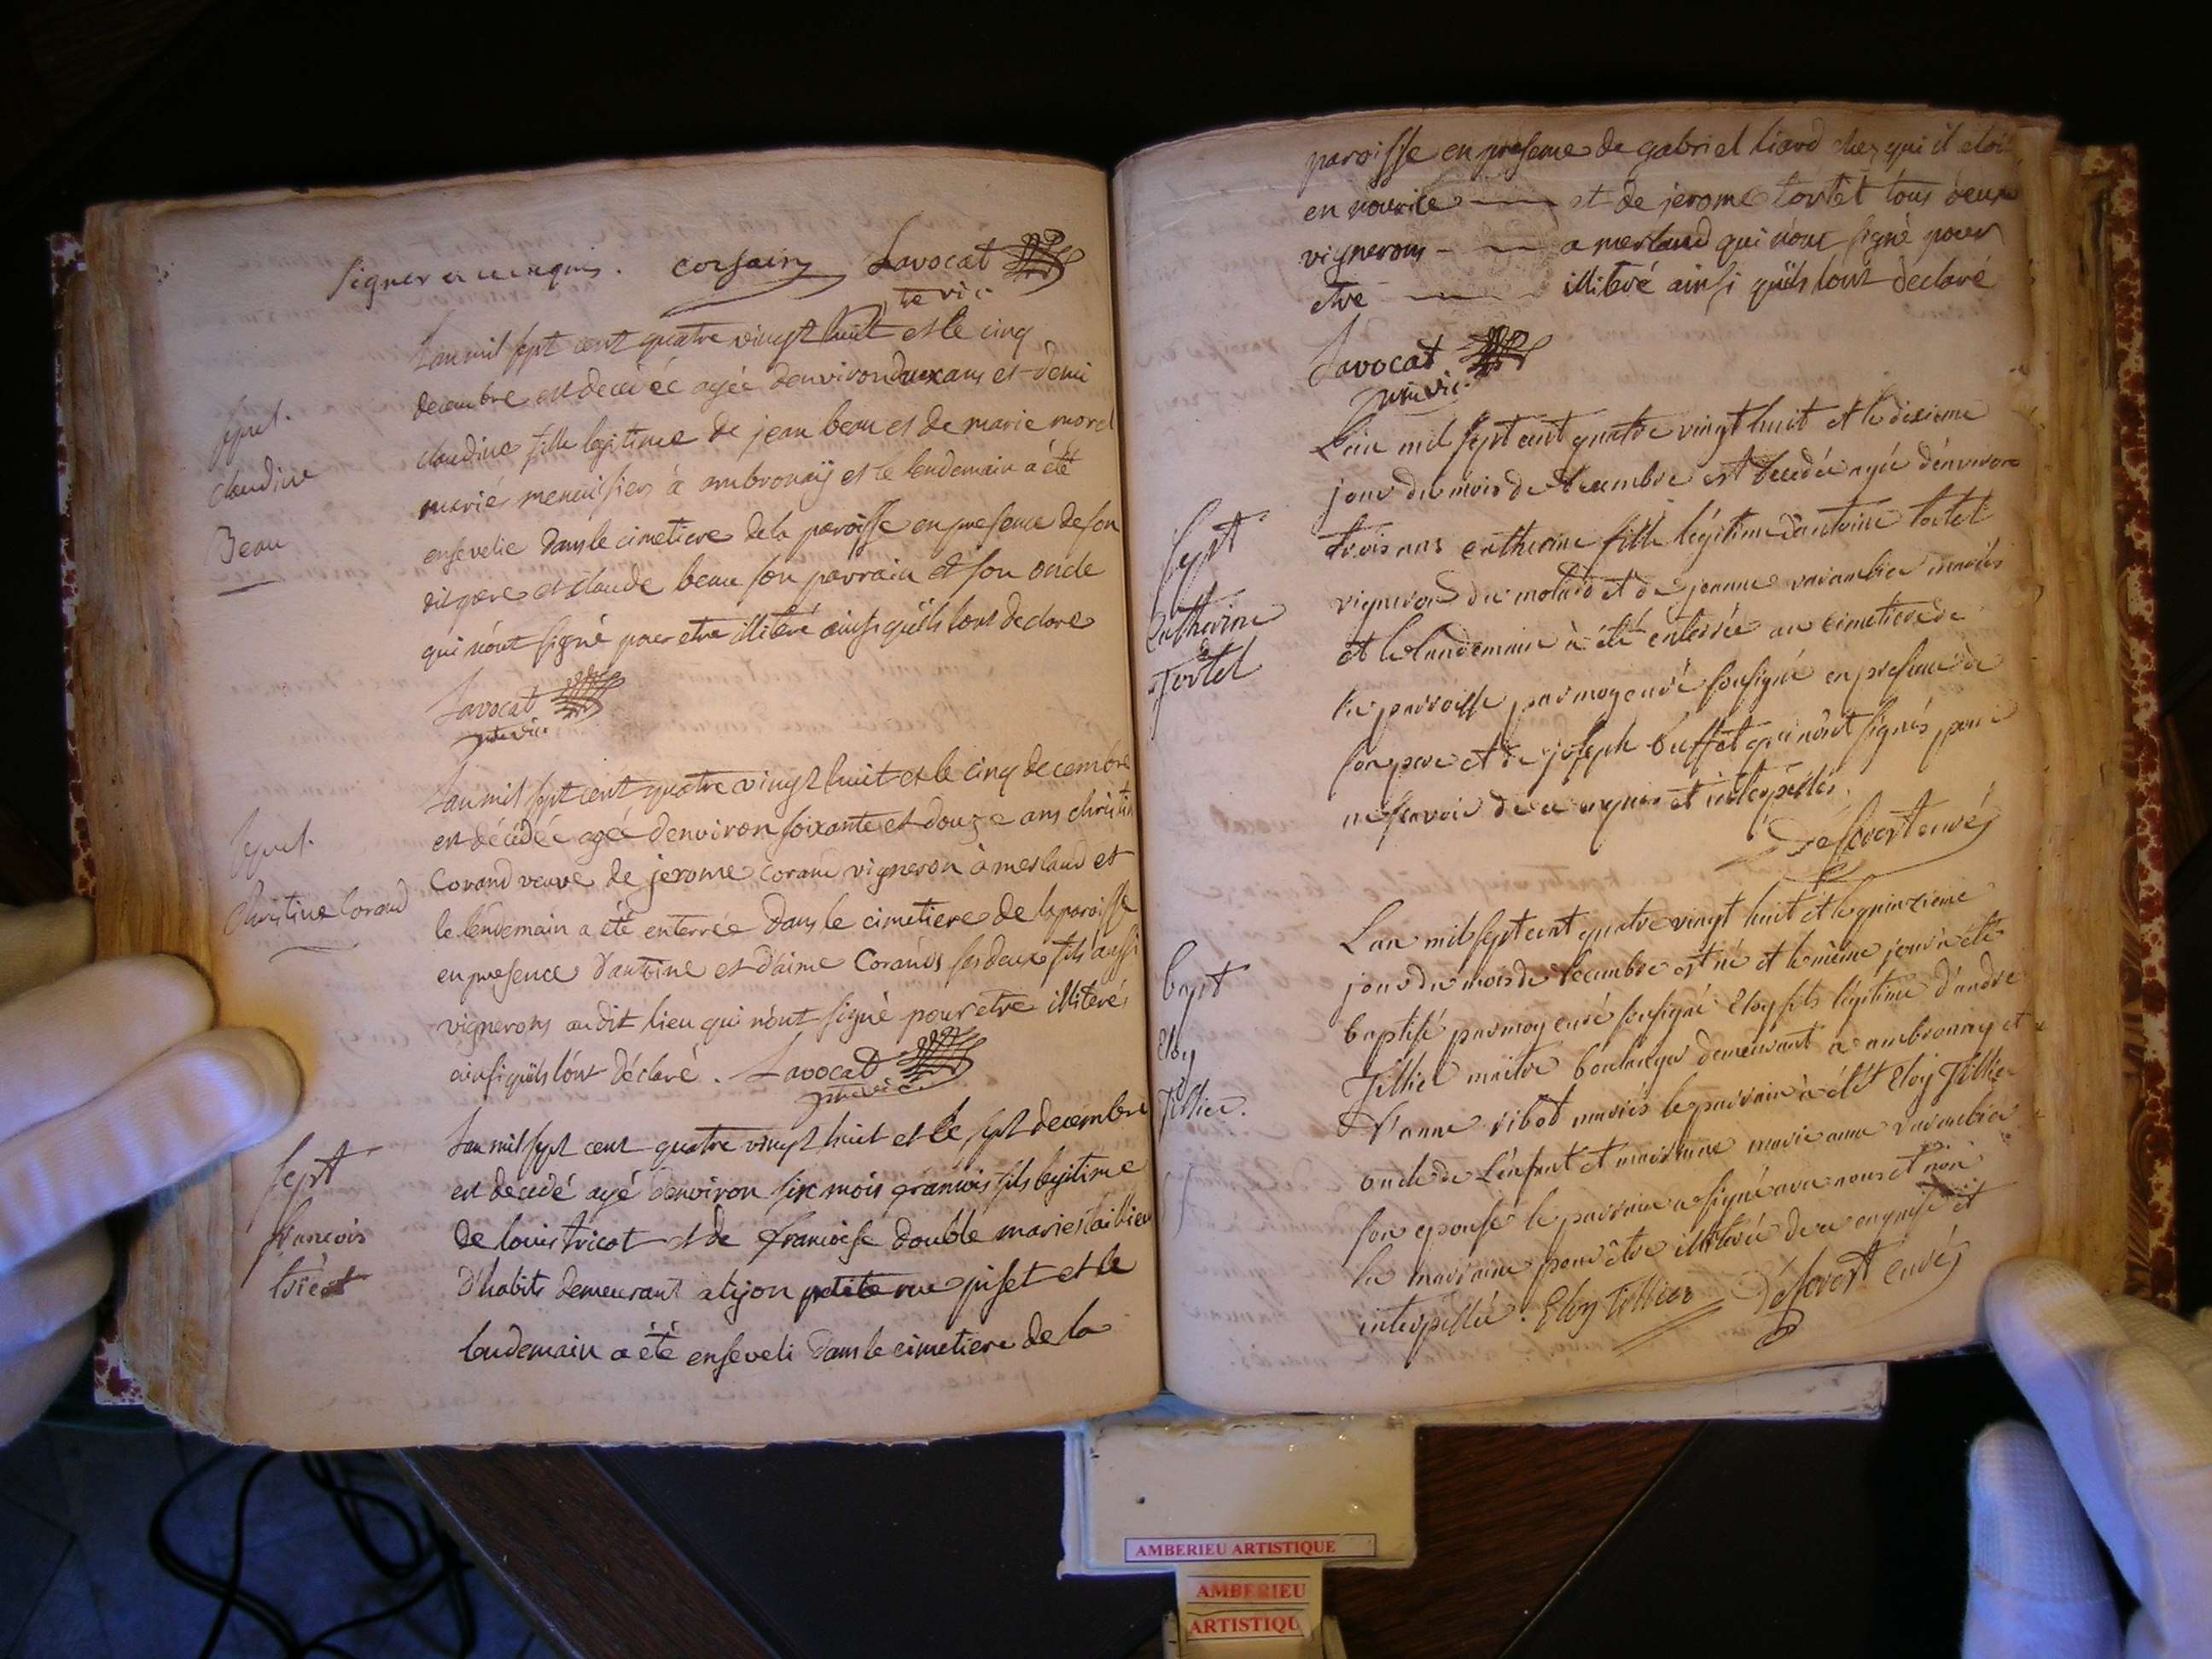 signer de ce enquis. corsain Lavocat
pte vic
Lan mil sept cent quatre vingt huit et le cinq
decembre est decedée agée denviron deux ans et demi
claudine fille legitime de jean beau et de marie morel
mariés menuisiers à ambronaÿ et le lendemain a été
ensevelie dans le cimetiere de la paroisse en presence de son
dit pere et claude beau son parrain et son oncle
qui n'ont signé pour etre illiteré ainsi qu'ils l'ont declare
Lavocat
pte vic
sepul.
claudine
Beau
Lan mil sept cent quatre vingt huit et le cinq decembre
est décédée agée denviron soixante et douze ans christin
Corand veuve de jerome corand vigneron à merland et
le lendemain a été enterrée dans le cimetiere de la paroisse
en presence d'antoine et d'aime Corands ses deux fils aussi
vignerons au dit lieu qui n'ont signé pour etre illiterés
ainsi qu'ils l'ont déclaré. Lavocat
sepul.
Christine Corand
Lan mil sept cent quatre vingt huit et le sept decembre
est decedé agé denviron six mois francois fils legitime
de louis tricot et de francoise double mariés tailleur
d'habits demeurant a lijon petite rue et le
lendemain a été enseveli dans le cimetiere de la
sept
francois
paroisse en presence de gabriel liard chez qui il etoit
en nourice et de jerome tortet tous deux
vignerons a merland qui n'ont signé pour
etre illiteré ainsi qu'ils l'ont declaré
Lavocat
L'an mil sept cent quatre vingt huit et le dixieme
jour du mois de decembre est decedée agée d'environ
trois ans catherine fille légitime d'antoine tortet
vigneron du molard et de jeanne varambier mariés
et le landemain à été enterrée au cimetiere de
la parroisse par moy curé soussigné en presence de
son pere et de joseph buffet qui n'ont signés pour
ne scavoir de ce enquis et interpellés.
Desavert curé
sept
Catherine
Tortet
L an mil sept cent quatre vingt huit et le quinzieme
jour du mois de decembre est né et le même jour à été
baptisé par moy curé soussigné Eloy fils légitime d'andré
Tillier maitre boulanger demeurant à ambronay et
d'anne ribod mariés le parrain à été Eloy Tillier
oncle de l'enfant et marraine marie anne varambier
son epouse le parrain a signé avec nous et non
la marraine pour être illiterée de ce enquise et
interpellée. Eloy Tillier Desavert curé
bapt
Eloy
Tillier.
AMBERIEU ARTISTIQUE
AMBERIEU
ARTISTIQU